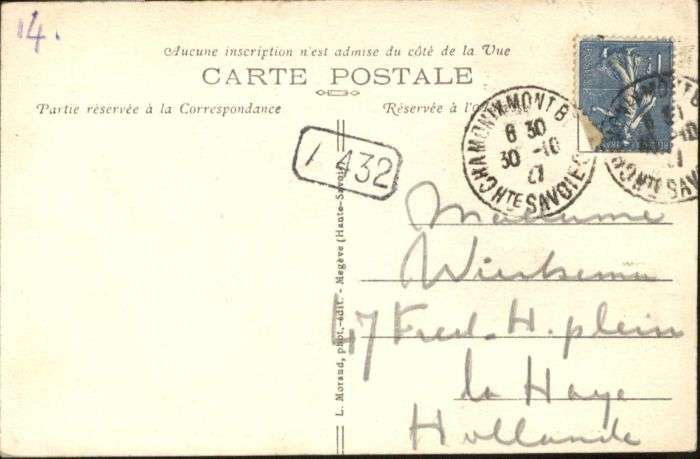 14.
Aucune inscription n'est admise du côté de la Vue
CARTE POSTALE
Partie réservée à la Correspondance
Réservée à l'
CHAMONIX MONT B
6 30
30 -10
27
HTE SAVOIE
1 432
L. Morand, phot.-édit. - Megève (Haute-Savoie)
Madame
Wiersema
47 Fred. H. plein
la Haye
Hollande